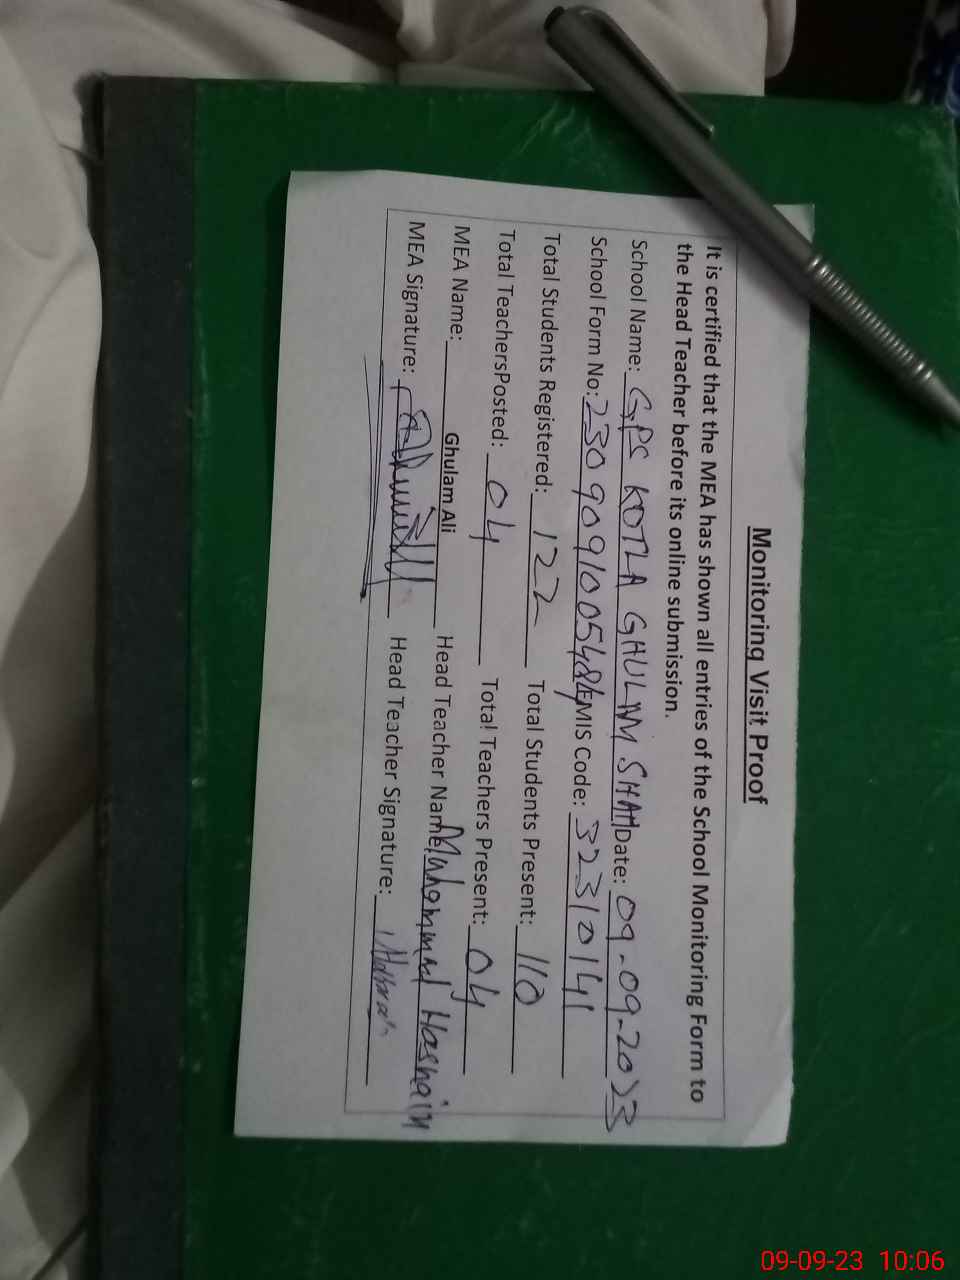 Monitoring Visit Proof
It is certified that the MEA has shown all entries of the School Monitoring Form to
the Head Teacher before its online submission.
School Name: GPS KOTLA GHULAM SHAH Date: 09-09-2023
School Form No: 2309091005484 EMIS Code: 32310141
Total Students Registered: 122 Total Students Present: 110
Total TeachersPosted: 04 Total Teachers Present: 04
MEA Name: Ghulam Ali Head Teacher Name Muhammad Hasnain
MEA Signature: Head Teacher Signature:
09-09-23 10:06